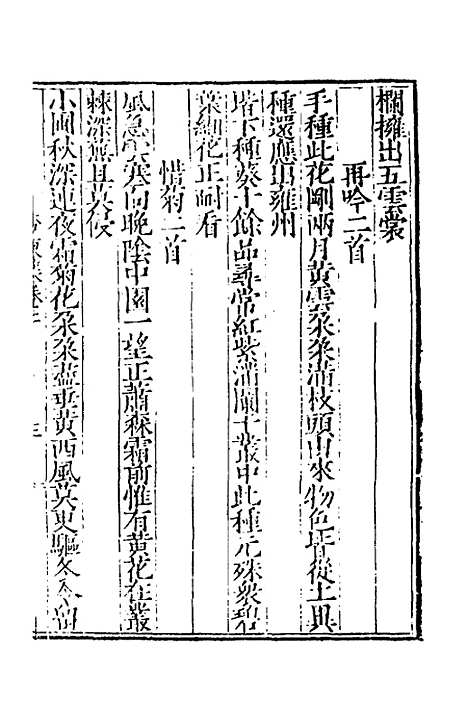 欄擁出五雲裳
再吟二首
手種此花剛兩月黃雲朶朶滿枝頭由來物色皆從土與
種還應出雍州
堦下種葵十餘品尋常紅紫滿闌干叢中此種元殊衆碧
葉緗花正耐看
惜菊二首
風急雲寒向晚陰中園一望正蕭森霜前惟有黃花在叢
棘深蕪且莫侵
小圃秋深連夜霜菊花朶朶盡垂黃西風莫更驅冬令留